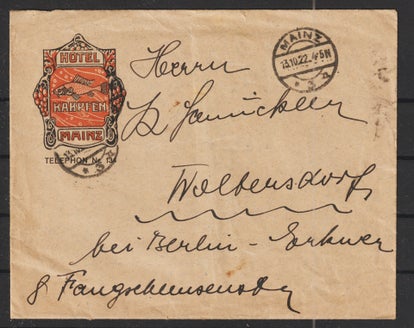 HOTEL
KARPFEN
MAINZ
TELEPHON No. 1
MAINZ
13.10.22. 4-5N
* 3 a
Herrn
Woltersdorf
bei Berlin-Erkner